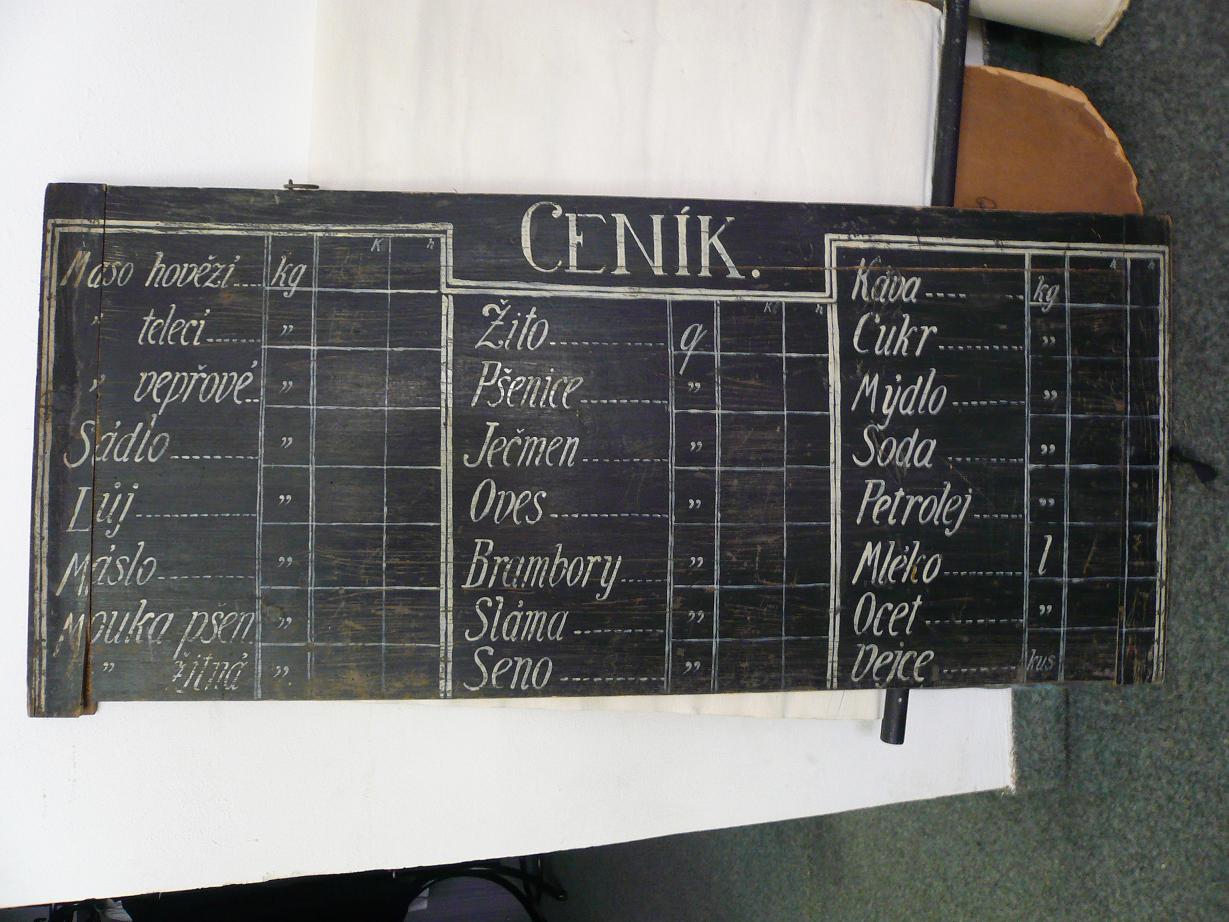 CENÍK.
K h
Maso hovězí.... kg
" telecí....... "
" vepřové.. "
Sádlo.......... "
Lůj............... "
Máslo........... "
Mouka pšen. "
" žitná "
K h
Žito............... q
Pšenice........... "
Ječmen........... "
Oves............... "
Brambory...... "
Sláma............ "
Seno.............. "
K h
Káva ..... kg
Cukr ......... "
Mýdlo ....... "
Soda ......... "
Petrolej...... "
Mléko ........ l
Ocet .......... "
Vejce ........ kus